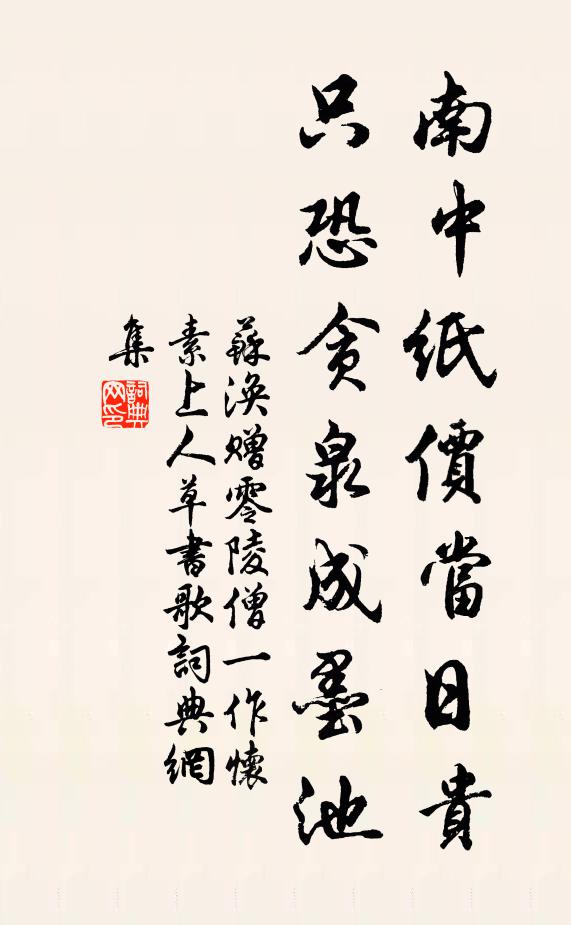 南中紙價當日貴
只恐貪泉成墨池
蘇渙贈零陵僧一作懷
素上人草書歌詞典網
集
詞典網印